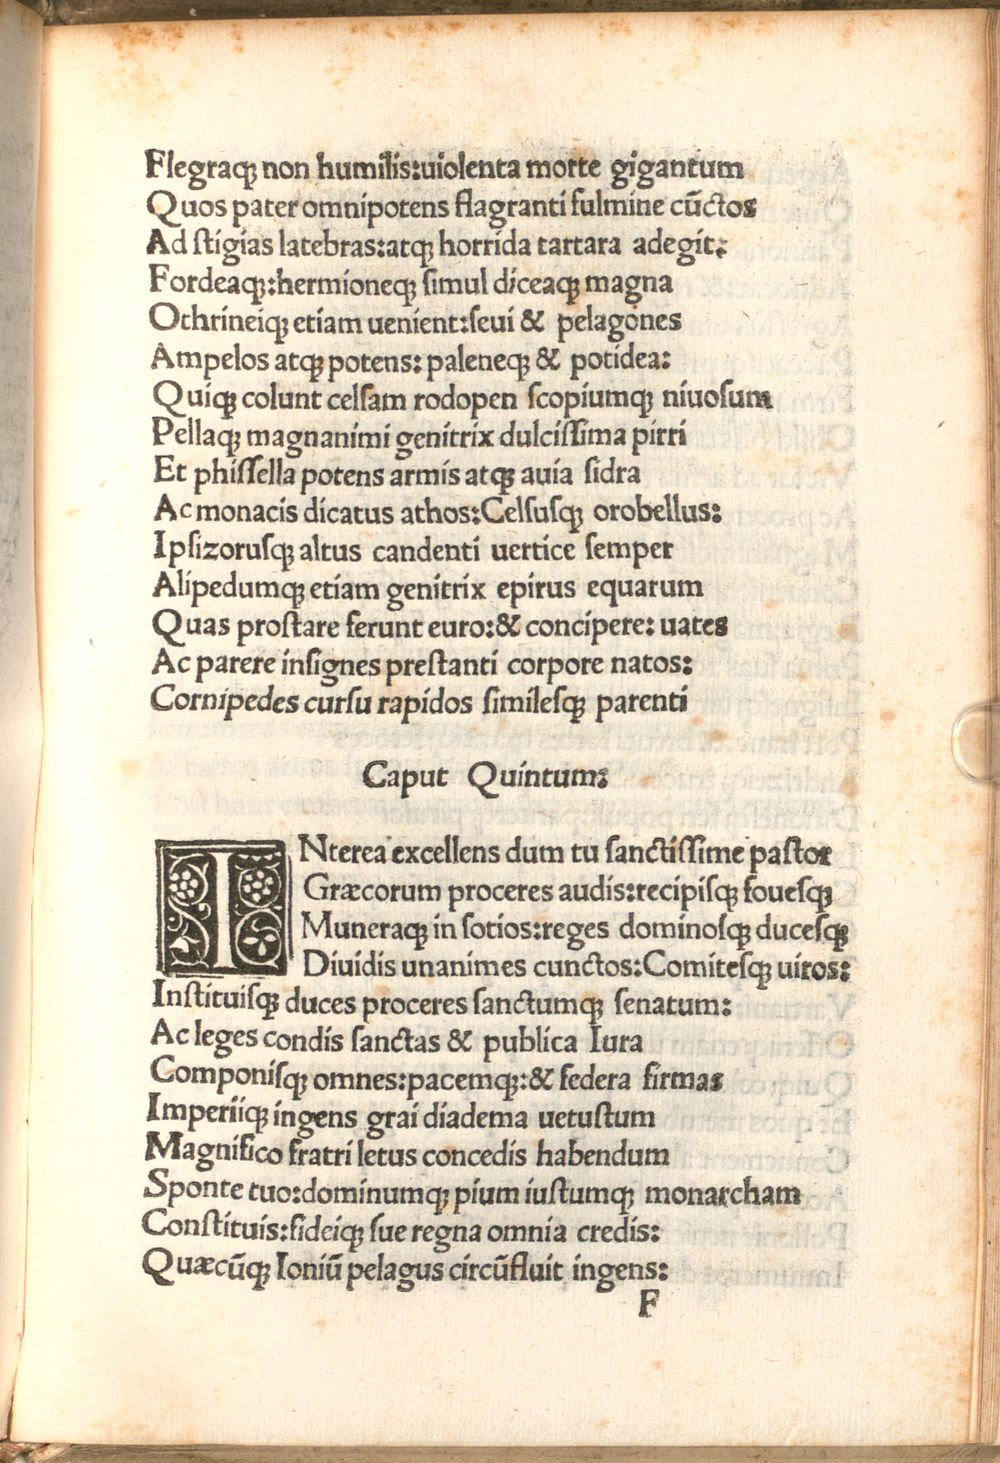 Flegraqꝫ non humilis:uiolenta morte gigantum
Quos pater omnipotens flagranti fulmine cūctos
Ad stigias latebras:atqꝫ horrida tartara adegit:
Fordeaqꝫ:hermioneqꝫ simul diceaqꝫ magna
Othrineiqꝫ etiam uenient:seui & pelagones
Ampelos atqꝫ potens: paleneqꝫ & potidea:
Quiqꝫ colunt celsam rodopen scopiumqꝫ niuosum
Pellaqꝫ magnanimi genitrix dulcissima pirri
Et phissella potens armis atqꝫ auia sidra
Ac monacis dicatus athos:Celsusqꝫ orobellus:
Ipsizorusqꝫ altus candenti uertice semper
Alipedumqꝫ etiam genitrix epirus equarum
Quas prostare ferunt euro:& concipere: uates
Ac parere insignes prestanti corpore natos:
Cornipedes cursu rapidos similesqꝫ parenti
Caput Quintum:
INterea excellens dum tu sanctissime pastor
Græcorum proceres audis:recipisqꝫ fouesqꝫ
Muneraqꝫ in sotios:reges dominosqꝫ ducesqꝫ
Diuidis unanimes cunctos:Comitesqꝫ uiros:
Instituisqꝫ duces proceres sanctumqꝫ senatum:
Ac leges condis sanctas & publica Iura
Componisqꝫ omnes:pacemqꝫ:& federa firmas
Imperiiqꝫ ingens grai diadema uetustum
Magnifico fratri letus concedis habendum
Sponte tuo:dominumqꝫ pium iustumqꝫ monarcham
Constituis:fideiqꝫ sue regna omnia credis:
Quæcūqꝫ Ioniū pelagus circūfluit ingens:
F